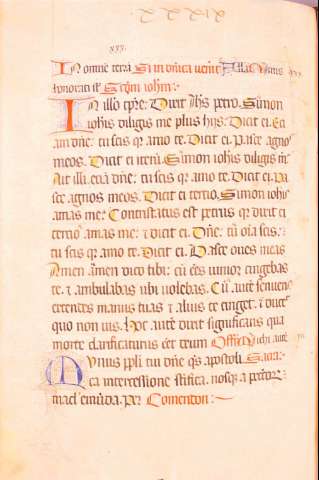 xxx.
In omnē terrā Si in dn̄ica uen̄it Alla Nimis
honorati st̄ Scdm̄ iohm̄:
In illo tp̄re: Dicit ih̄s petro. Simon
iohīs diligis me plus hijs: Dicit ei. Eci
am dn̄e: tu scis qr̄ amo te. Dicit ei. Pasce agnos
meos. Dicit ei iterū. Simon iohīs diligis m̄
Ait illi. eciā dn̄e: tu scis qr̄ amo te. Dicit ei: Pa
sce agnos meos. Dicit ei tercio. Simon iohīs
amas me: Contristatus est petrus qr̄ dixit ei
tercio amas me: & dicit ei. Dn̄e: tu oīa scis:
tu scis qr̄ amo te. Dicit ei. Pasce oues meas
Amen amen dico tibi: cū eēs iunior cingebas
te. & ambulabas ubi uolebas. Cū autē senueris
extendes manus tuas & alius te cinget. & ducet
quo non uis. Hoc autē dixit significans qua
morte clarificaturus eēt deum Offer Michi autē
Munus pp̄li tui dn̄e qs̄ apostoli
ca intercessione sc̄ifica. nosqꝫ a pctōꝝ
macl̄ emūda. Per Comendon: